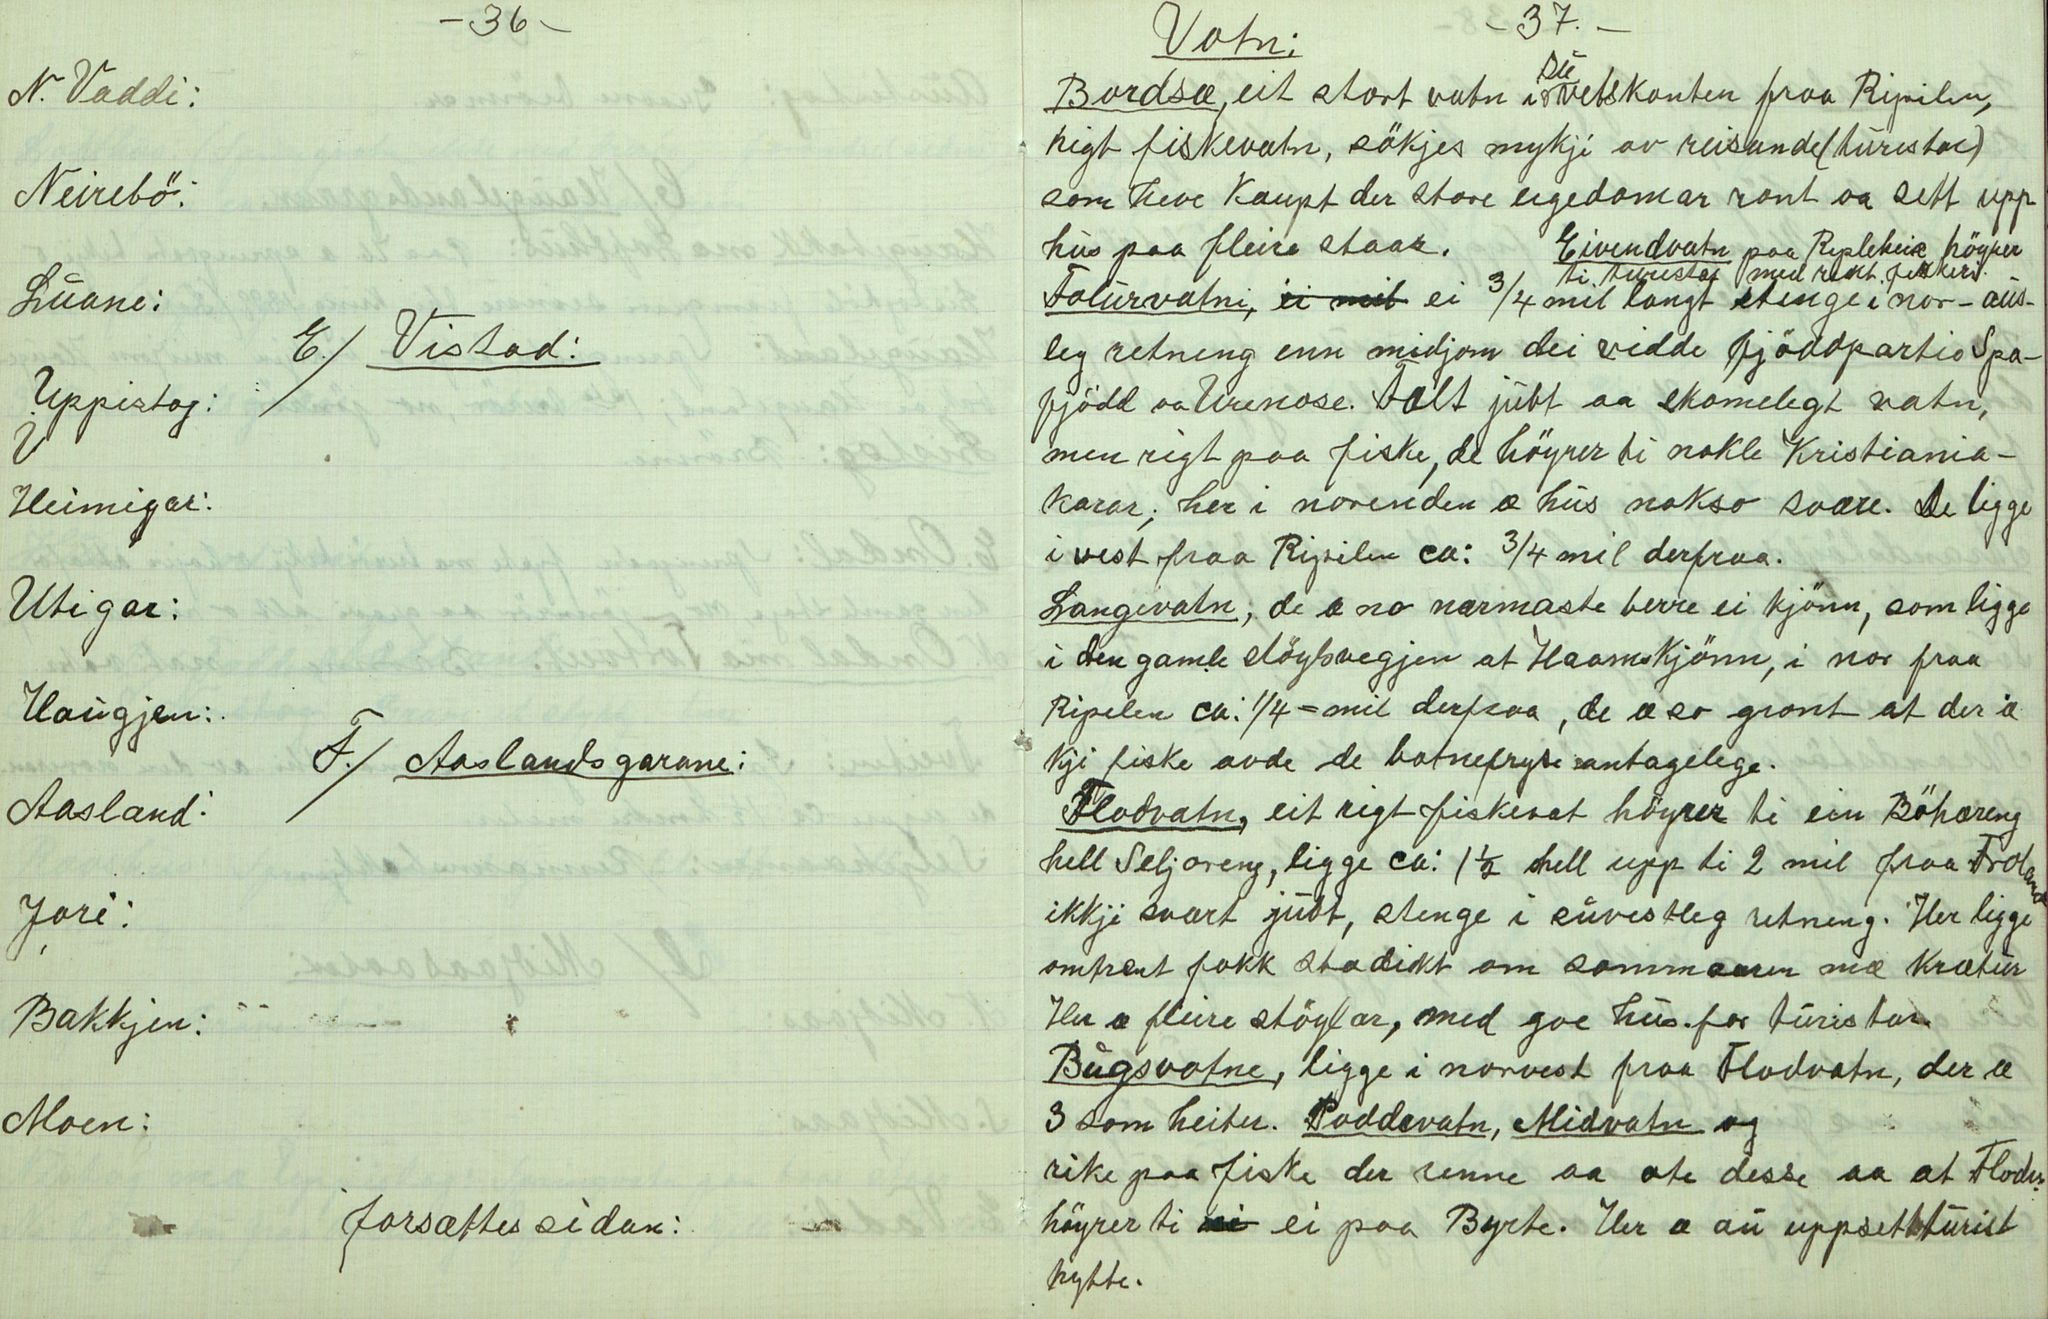 -36-
N. Vaddi:
Neirebö:
Lūane:
E./ Vistad:
Uppistog:
V
Heimigar:
Utigar:
Haugjen:
F./ Aaslandsgarane:
Aasland:
Jori:
Bakkjen:
Moen:
forsættes sidan:
-37.-
Votni
Bordsæ, eit stort vatn i vetskanten fraa Ripilen,
rigt fiskevatn, sökjes mykji av reisande (tūristar)
som heve kaupt der store eigedomar ront oa sett upp
hūs paa fleire staar. Eivendvatn paa Ripleheie höyrer
ti turistar med rект fiskeri.
Totūrvatni, ei mil ei 3/4 mil langt stenge i nor-aūs-
leg retneng enn midjom dei vidde fjöddpartio Spa-
fjödd oa Urenose. Fælt jūbt aa skomelegt vatn,
men rigt paa fiske, de höyrer ti nokle Kristiania-
karar; her i norenden æ hūs nokso svære. De ligge
i vest fraa Ripilen ca: 3/4 mil derfraa.
Langevatn, de æ no nærmaste berre ei kjönn, som ligge
i den gamle stöylsvegjen at Haamskjönn, i nor fraa
Ripelen ca: 1/4 = mil derfraa, de æ so gront at der æ
kji fiske avde de botnefryse antagelege.
Flodvatn, eit rigt fiskevat höyrer ti ein Böhæreng
hell Seljoreng, ligge ca: 1 1/2 hell upp ti 2 mil fraa Froland
ikkji svært jūbt, stenge i sūvestleg retneng. Her ligge
omfrent fokk stadikt om sommaaren mæ krætūr
Her æ fleire stöylar, med goe hūs for tūristar.
Būgsvatne, ligge i norvest fraa Flodvatn, der æ
3 som heiter. Poddevatn, Midvatn og
rike paa fiske der renne aa ote desse aa at Flodv.
höyrer ti ei paa Byrte. Her æ aū uppsett tūrist
hytte.